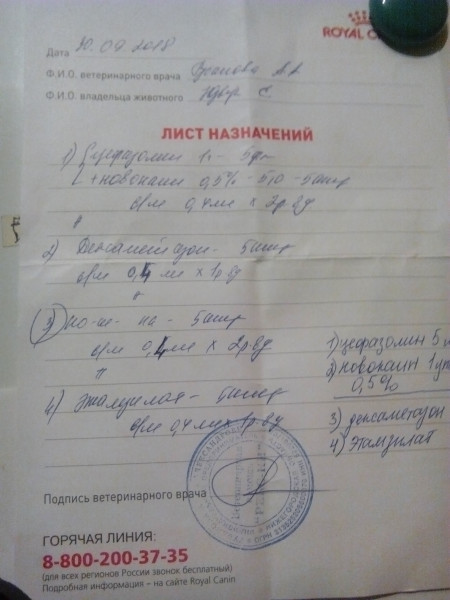 ROYAL C
Дата 20.09.2018
Ф.И.О. ветеринарного врача
Ф.И.О. владельца животного
ЛИСТ НАЗНАЧЕНИЙ
1) Цефазолин 1г - 5фл
+ новокаин 0,5% - 5,0 - 5амп
в/м 0,4мл x 2р вд
2) Дексаметазон - 5амп
в/м 0,4 мл x 1р вд
3) Но-ш-па - 5амп
в/м 0,4мл x 2р вд
4) Этамзилат - 5амп
в/м 0,4 мл x 1р вд
1) цефазолин 5
2) новокаин 1уп
0,5%
3) дексаметазон
4) этамзилат
Подпись ветеринарного врача
ГОРЯЧАЯ ЛИНИЯ:
8-800-200-37-35
(для всех регионов России звонок бесплатный)
Подробная информация – на сайте Royal Canin